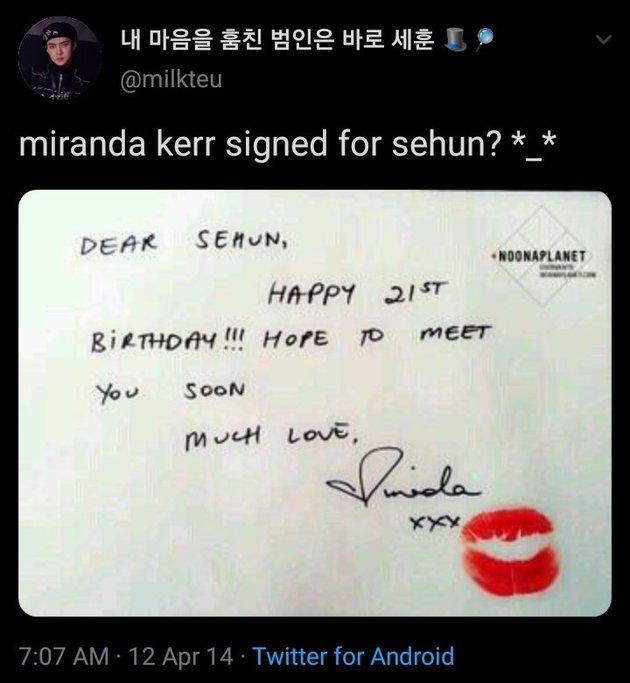 내 마음을 훔친 범인은 바로 세훈 🎩🔎
@milkteu
miranda kerr signed for sehun? *_*
DEAR SEHUN,
NOONAPLANET
HAPPY 21ST
BIRTHDAY!!! HOPE TO MEET
YOU SOON
MUCH LOVE,
Miranda
xxx
7:07 AM · 12 Apr 14 · Twitter for Android